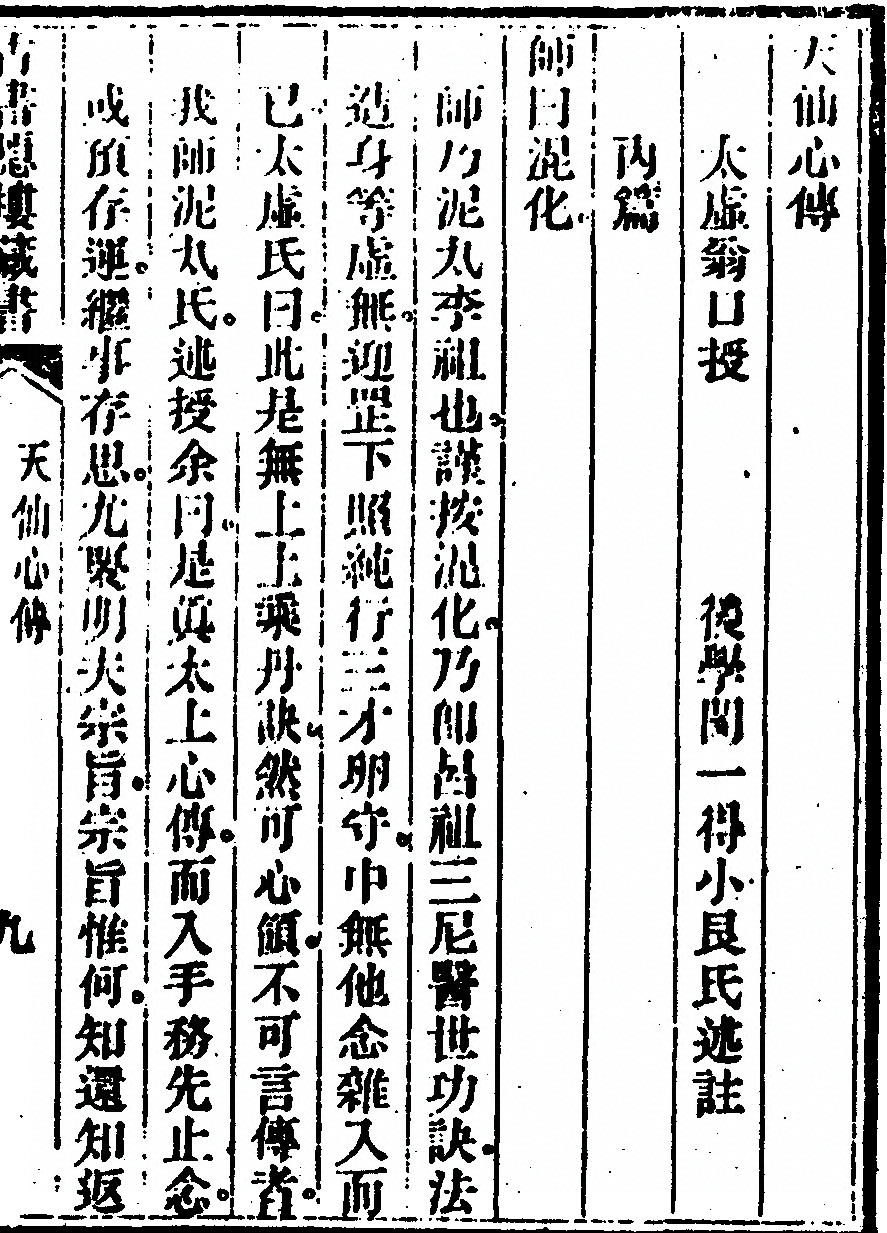 天仙心傳
太虛翁口授 後學閔一得小艮氏述註
內篇
師曰混化
師乃泥丸李祖也謹按混化乃卽呂祖三尼醫世功訣法
造身等虛無迎罡下照純行三才卵守中無他念雜入而
已太虛氏曰此是無上上乘丹訣然可心領不可言傳者
我師泥丸氏述授余曰是眞太上心傳而入手務先止念
或預存運繼事存思尤要明夫宗旨宗旨惟何知還知返
古書隱樓藏書 天仙心傳 九